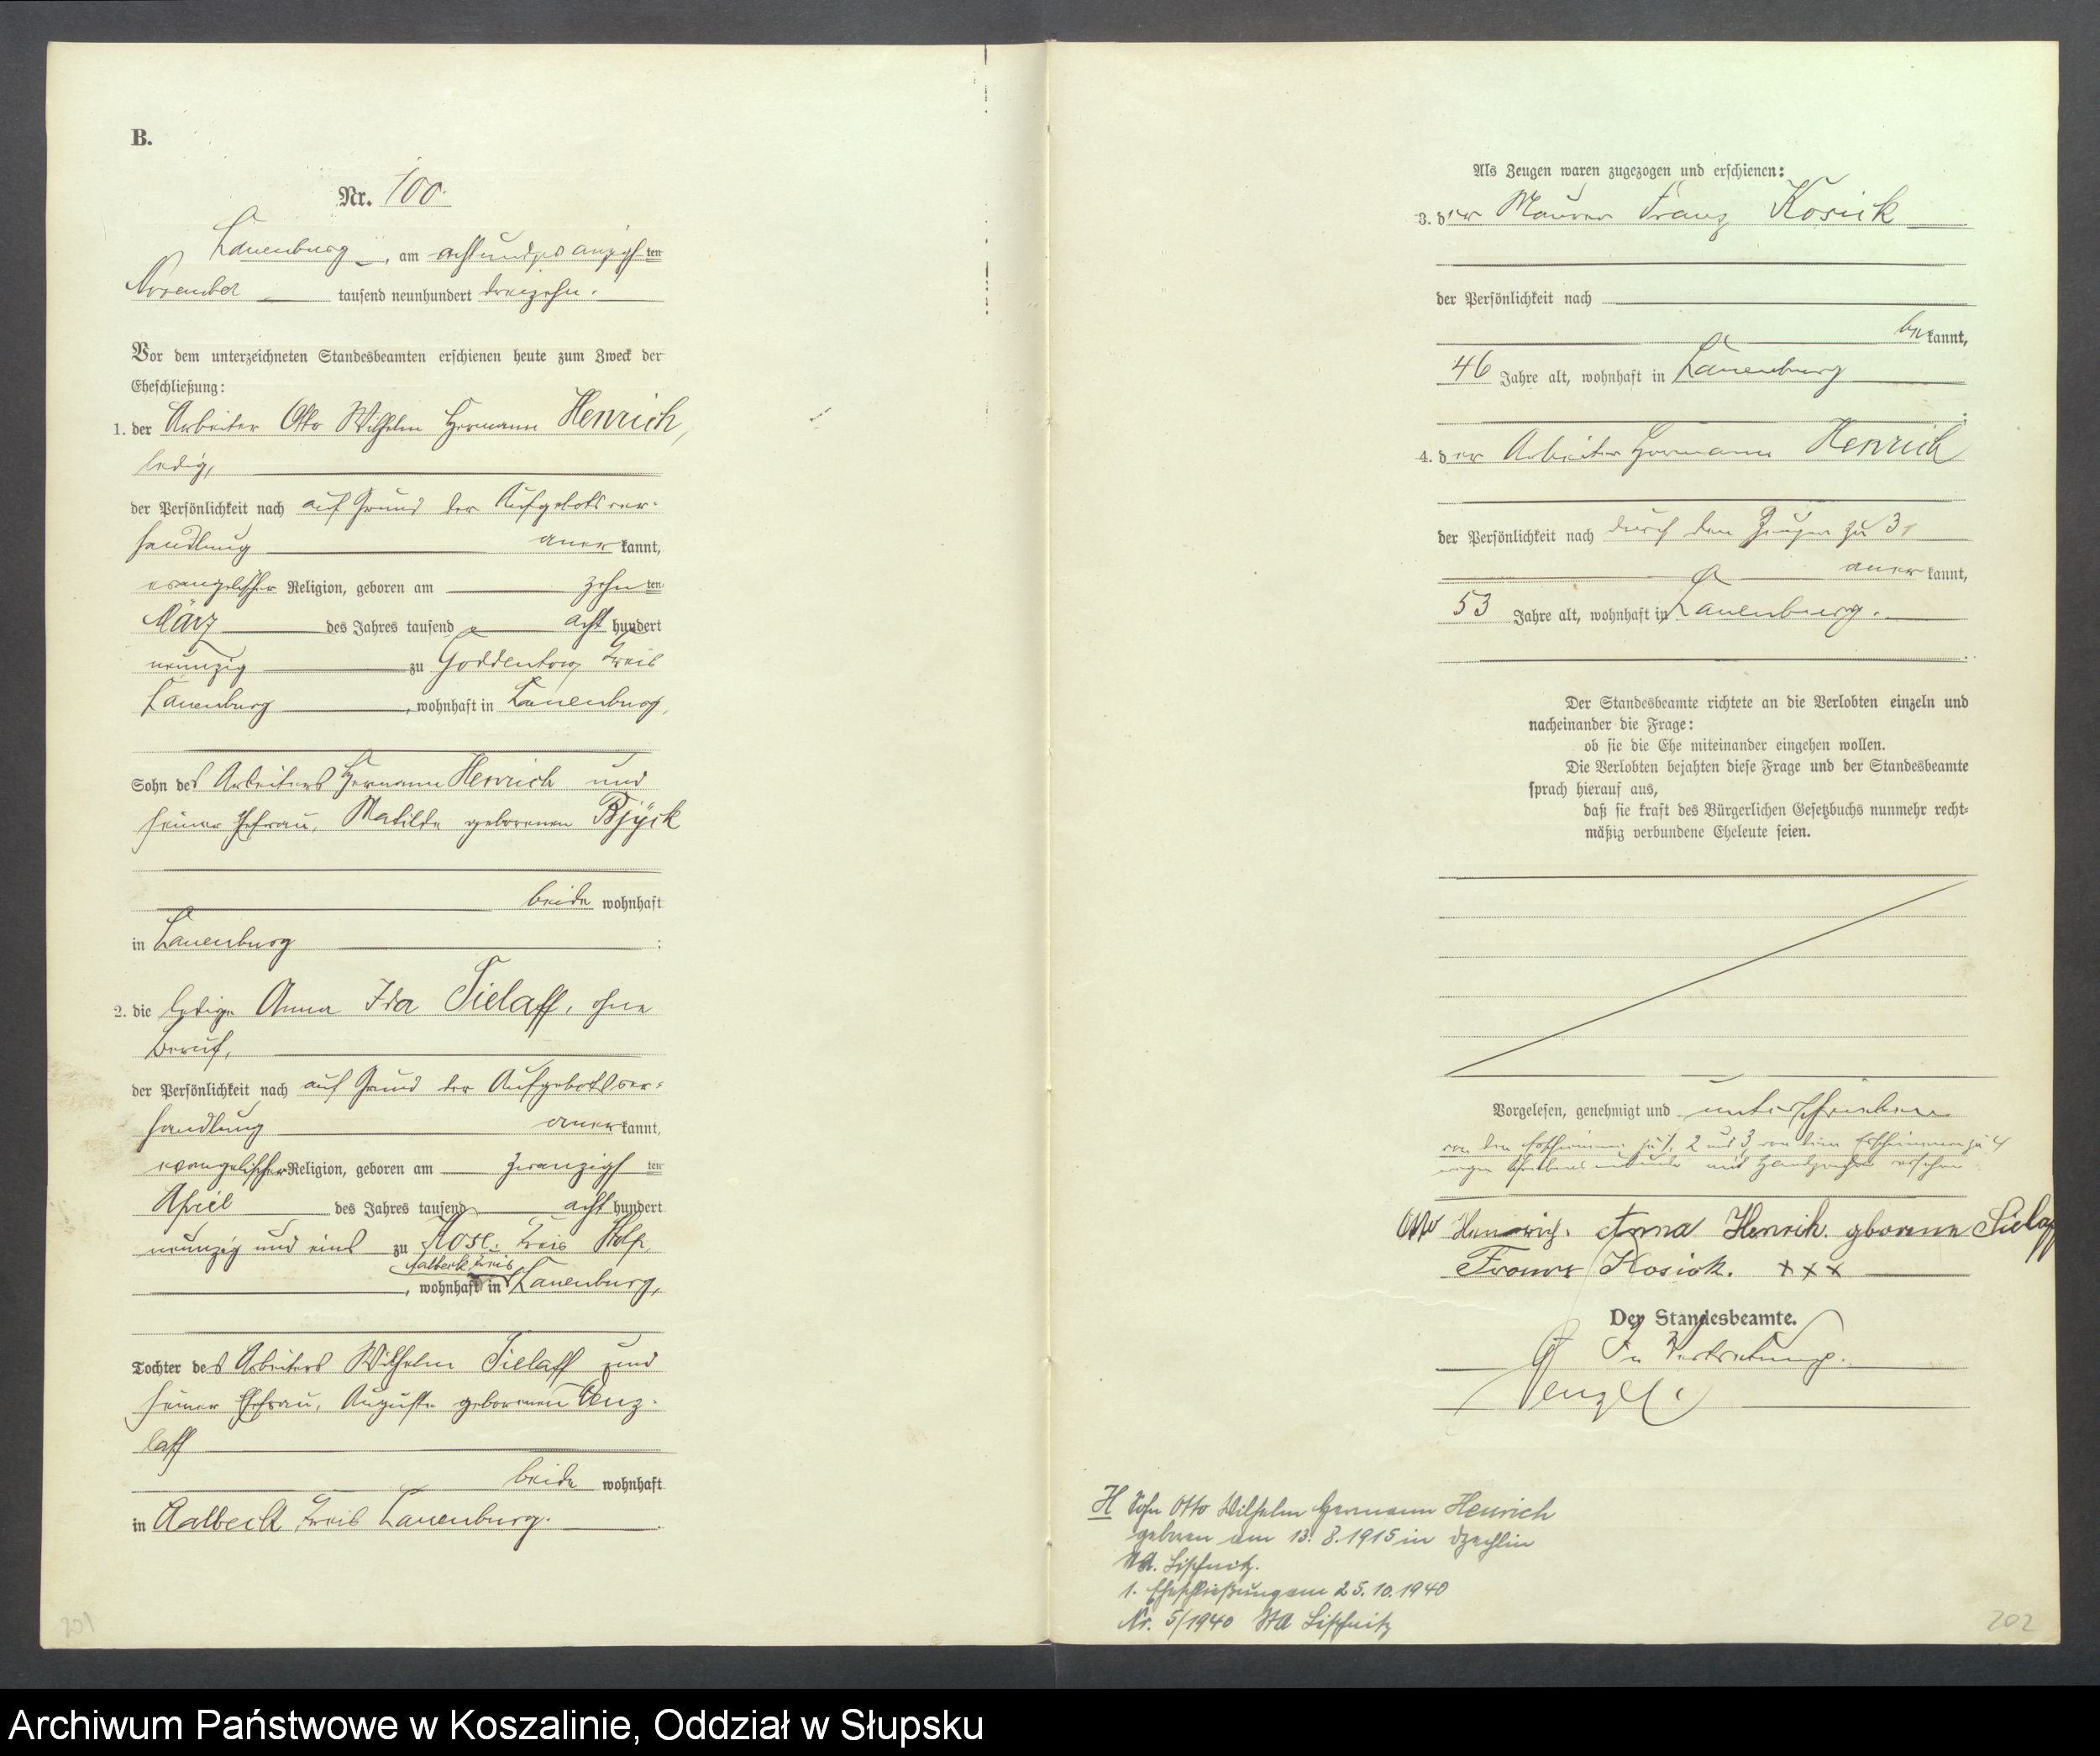 B.
Nr. 100.
Lauenburg, am achtundzwanzigsten
November tausend neunhundert dreizehn.
Vor dem unterzeichneten Standesbeamten erschienen heute zum Zweck der
Eheschließung:
1. der Arbeiter Otto Wilhelm Hermann Henrich,
ledig,
der Persönlichkeit nach auf Grund der Aufgebotsver-
handlung anerkannt,
evangelischer Religion, geboren am zehnten
März des Jahres tausend acht hundert
neunzig zu Goddentow, Kreis
Lauenburg, wohnhaft in Lauenburg,
Sohn des Arbeiters Hermann Henrich und
seiner Ehefrau, Matilde geborenen
beide wohnhaft
in Lauenburg :
2. die ledige Anna Ida Sielaff, ohne
Beruf,
der Persönlichkeit nach auf Grund der Aufgebotsver-
handlung anerkannt,
evangelischer Religion, geboren am zwanzigsten
April des Jahres tausend acht hundert
neunzig und eins zu Kreis Stolp,
, wohnhaft in Lauenburg,
Tochter des Arbeiters Wilhelm Sielaff und
seiner Ehefrau, Auguste geborenen
laff
beide wohnhaft
in Aalbeck Kreis Lauenburg.
201
Als Zeugen waren zugezogen und erschienen:
3. der Maurer Franz Kosick
der Persönlichkeit nach
bekannt,
46 Jahre alt, wohnhaft in Lauenburg
;
4. der Arbeiter Hermann Henrich
der Persönlichkeit nach durch den Zeugen zu 3,
anerkannt,
53 Jahre alt, wohnhaft in Lauenburg.
Der Standesbeamte richtete an die Verlobten einzeln und
nacheinander die Frage:
ob sie die Ehe miteinander eingehen wollen.
Die Verlobten bejahten diese Frage und der Standesbeamte
sprach hierauf aus,
daß sie kraft des Bürgerlichen Gesetzbuchs nunmehr recht-
mäßig verbundene Eheleute seien.
Vorgelesen, genehmigt und unterschrieben
von den Erschienenen zu 1, 2 und 3, von dem Erschienenen zu 4
wegen Schreibensunkunde mit Handzeichen versehen.
Otto Henrich. Anna Henrich. geborene Sielaff
Kosick. xxx
Der Standesbeamte.
In Vertretung.
H Sohn Otto Wilhelm Hermann Henrich
geboren am 13. 8. 1915 in Dzechlin
StA. Lischnitz.
1. Eheschließung am 25. 10. 1940
Nr. 5/1940 StA Lischnitz
202
Archiwum Państwowe w Koszalinie, Oddział w Słupsku